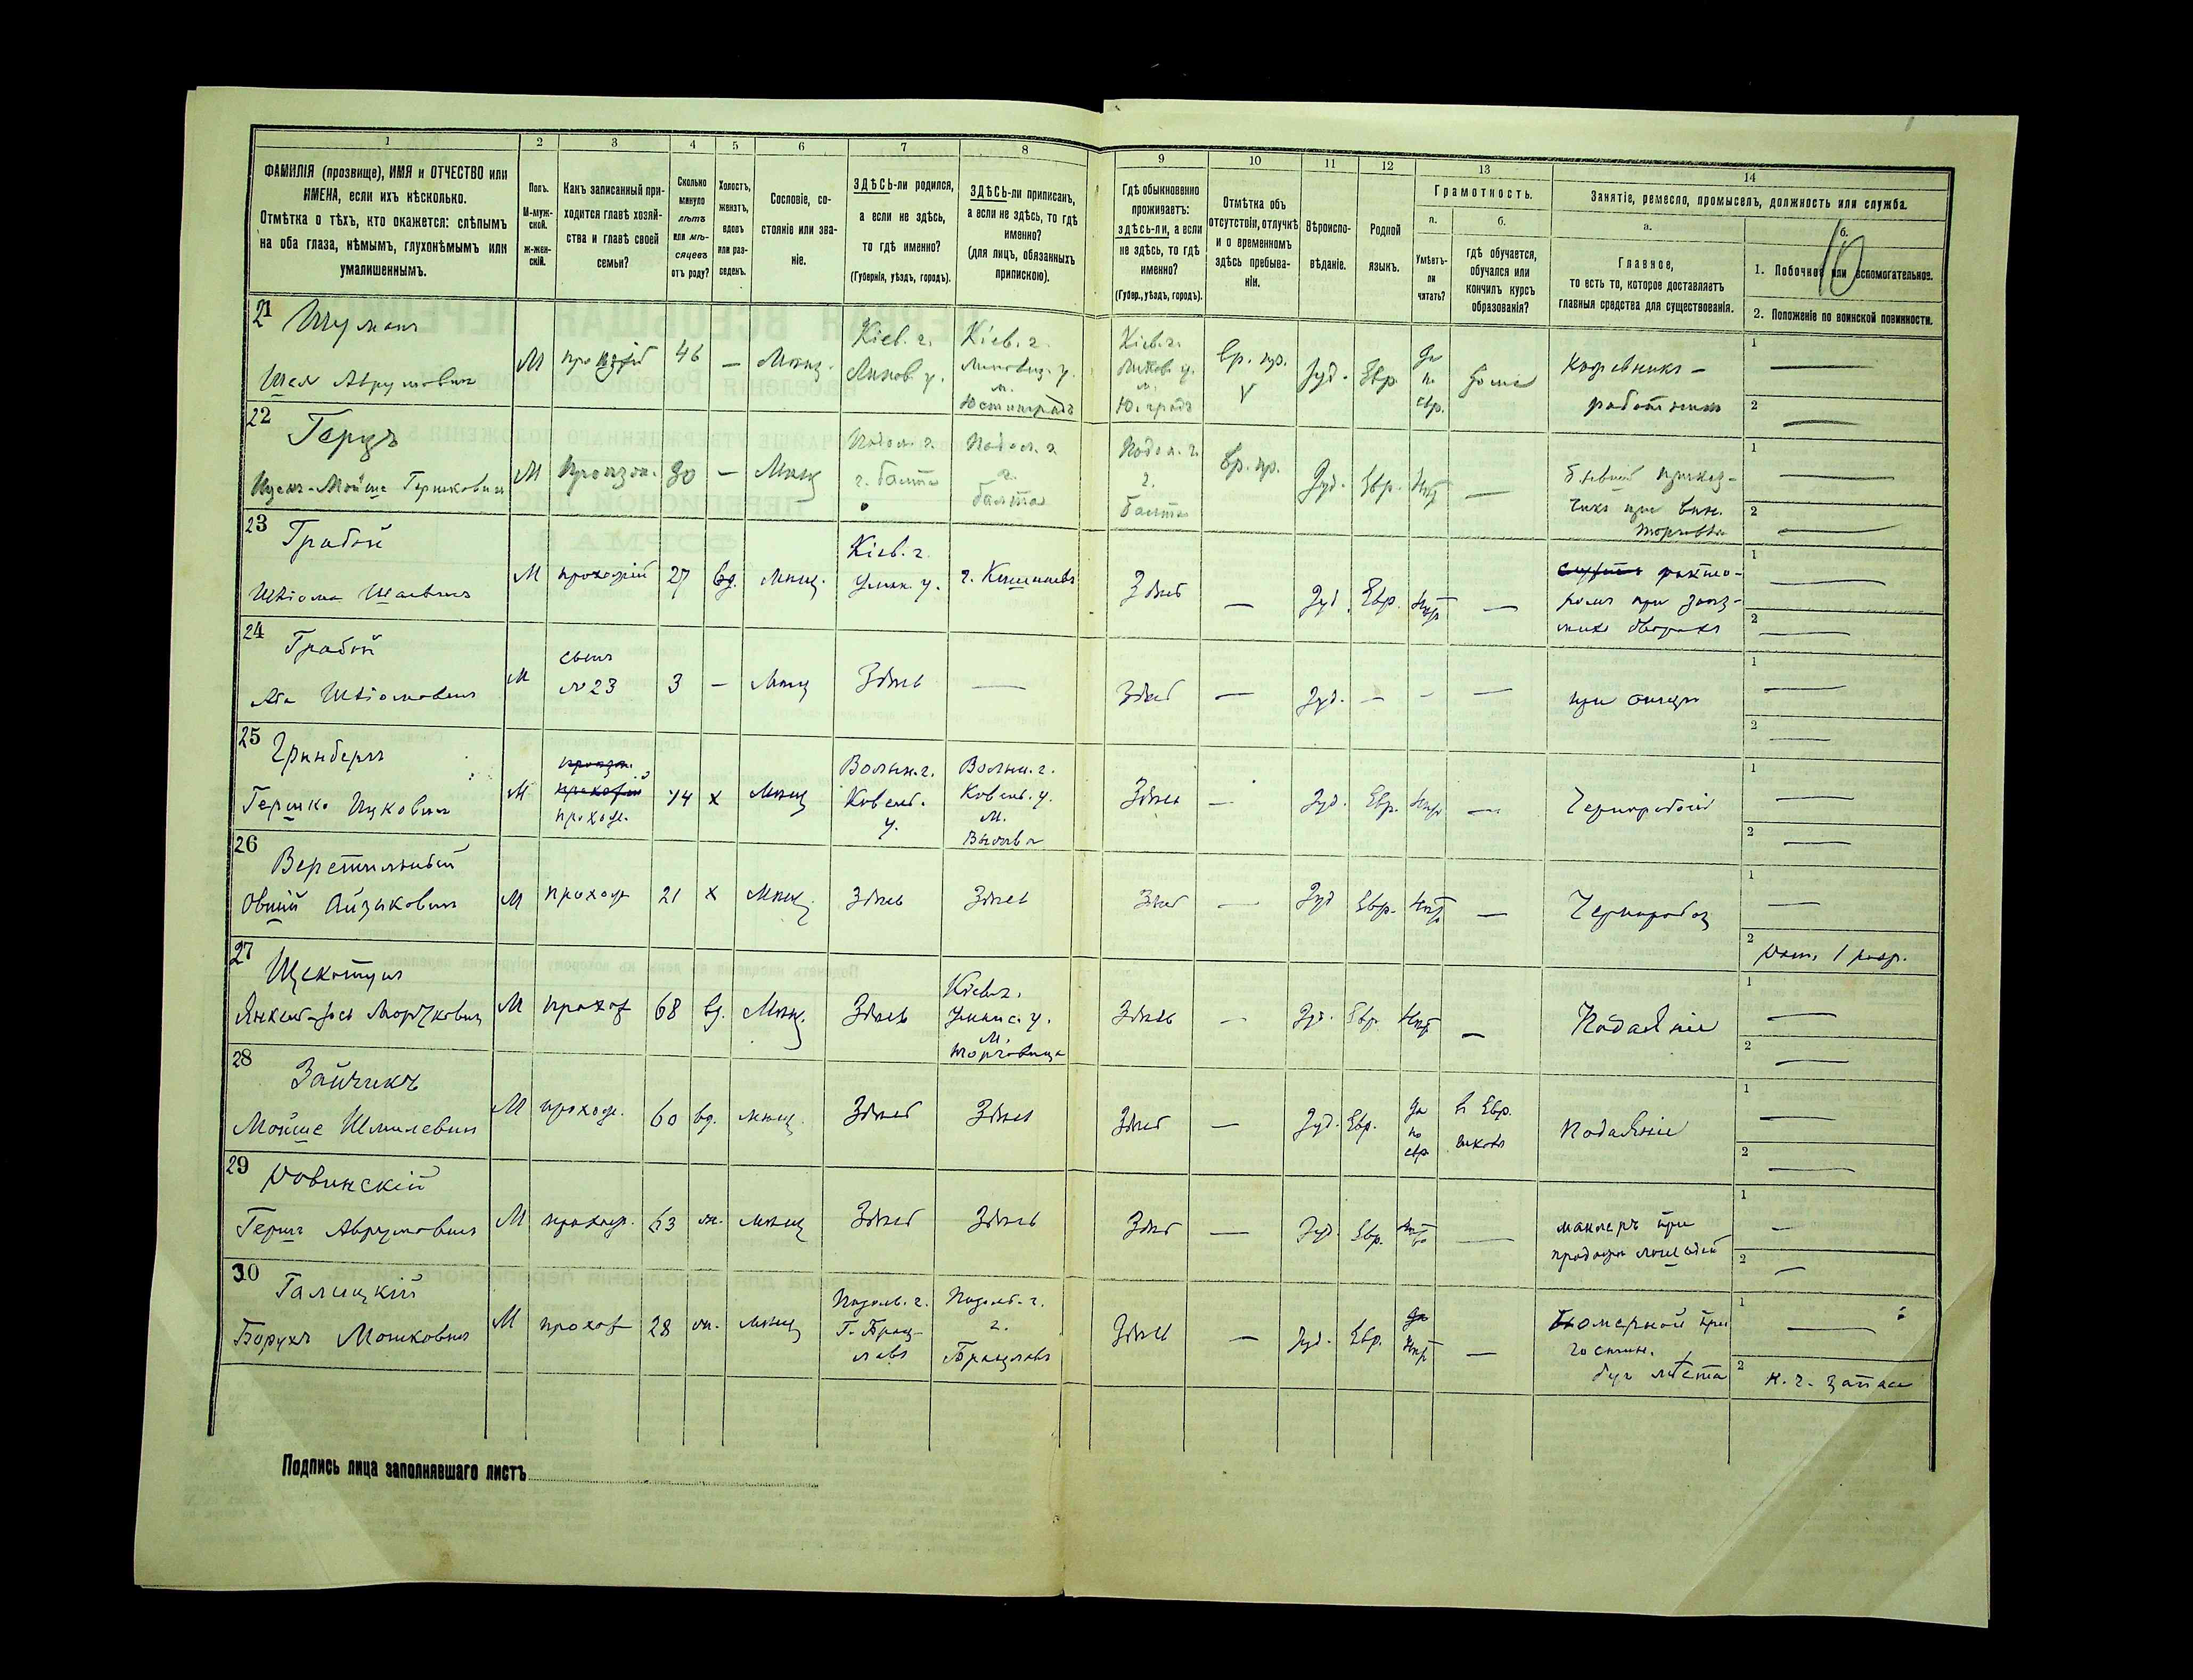 1 2 3 4 5 6 7 8 9 10 11 12 13 14
ФАМИЛІЯ (прозвище), ИМЯ и ОТЧЕСТВО или
ИМЕНА, если ихъ нѣсколько.
Отмѣтка о тѣхъ, кто окажется: слѣпымъ
на оба глаза, нѣмымъ, глухонѣмымъ или
умалишеннымъ.
Полъ.
М-муж-
ской.
Ж-жен-
скій.
Какъ записанный при-
ходится главѣ хозяй-
ства и главѣ своей
семьи?
Сколько
минуло
лѣтъ
или мѣ-
сяцевъ
отъ роду?
Холостъ,
женатъ,
вдовъ
или раз-
веденъ.
Сословіе, со-
стояніе или зва-
ніе.
ЗДѢСЬ-ли родился,
а если не здѣсь,
то гдѣ именно?
(Губернія, уѣздъ, городъ).
ЗДѢСЬ-ли приписанъ,
а если не здѣсь, то гдѣ
именно?
(для лицъ, обязанныхъ
припискою).
Гдѣ обыкновенно
проживаетъ:
здѣсь-ли, а если
не здѣсь, то гдѣ
именно?
(Губер., уѣздъ, городъ).
Отмѣтка объ
отсутствіи, отлучкѣ
и о временномъ
здѣсь пребыва-
ніи.
Вѣроиспо-
вѣданіе.
Родной
языкъ.
Грамотность.
а.
Умѣетъ-
ли
читать?
б.
гдѣ обучается,
обучался или
кончилъ курсъ
образованія?
Занятіе, ремесло, промыселъ, должность или служба.
а.
Главное,
то есть то, которое доставляетъ
главныя средства для существованія.
б.
10
1. Побочное или вспомогательное.
2. Положеніе по воинской повинности.
21 Шуманъ
Шая Аврумовичъ
М
46
—
Мѣщ.
Кіев. г.
Липов. у.
Кіев. г.
Липовец. у.
м.
Юстинградъ
Кіев. г.
Липов. у.
м.
Ю. градъ
Вр. пр.
Іуд.
Евр.
Да
по
евр.
дома
работникъ
1 —
2 —
22 Герцъ
Ицект-Мойше Гершковичъ
М
—
Мѣщ
Подол. г.
г. Балта
Подол. г.
г.
Балта
Подол. г.
г.
Балта
Вр. пр.
Іуд.
Евр.
Нѣтъ
—
бывшій приказ-
чикъ при вин.
торговлѣ
1 —
2 —
23 Грабой
Шлёма Шаевичъ
М
прохожій
27
вд.
мѣщ.
Кіев. г.
Уман. у.
г. Кишиневъ
Здѣсь
—
Іуд.
Евр.
Нѣтъ
—
факто-
ромъ при заѣз-
жихъ дворахъ
1 —
2 —
24 Грабой
Аба Шлёмовичъ
М
сынъ
№ 23
3
—
Мѣщ
Здѣсь
—
Здѣсь
—
Іуд.
—
—
—
при отцѣ
1 —
2 —
25 Гринбергъ
Гершко Ицковичъ
М
прохож.
44
х
Мѣщ
Волын. г.
Ковельс.
у.
Волын. г.
Ковель. у.
м.
Здѣсь
—
Іуд.
Евр.
Нѣтъ
—
Чернорабочій
1 —
2 —
26 Веретильный
Овшій Айзыковичъ
М
прохож
21
х
Мѣщ.
Здѣсь
Здѣсь
Здѣсь
—
Іуд
Евр.
Нѣтъ
—
Чернорабоч
1 —
2 Рат. 1 разр.
27 Щекотухъ
Янкель-Іось Мордковичъ
М
прохож
68
вд.
Мѣщ.
Здѣсь
Кіев. г.
Уманс. у.
м.
Торговица
Здѣсь
—
Іуд.
Евр.
Нѣтъ
—
Подаяніе
1 —
2 —
28 Зайчикъ
Мойше Шмилевичъ
М
прохож.
60
вд.
мѣщ.
Здѣсь
Здѣсь
Здѣсь
—
Іуд.
Евр.
Да
по
евр
в Евр.
школѣ
Подаяніе
1 —
2 —
29 Ровинскій
Гершъ Аврумовичъ
М
прохож.
63
ж.
мѣщ
Здѣсь
Здѣсь
Здѣсь
—
Іуд.
Евр.
Нѣтъ
—
маклеръ при
продажѣ лошадей
1 —
2 —
30 Галицкій
Борухъ Мошковичъ
М
прохож
28
ж.
мѣщ
Подольс. г.
г. Брац-
лавъ
Подольс. г.
г.
Брацлавъ
Здѣсь
—
Іуд.
Евр.
Нѣтъ
—
номерной при
гостин.
без мѣста
1 —
2 н. ч. запаса
Подпись лица заполнявшаго листъ